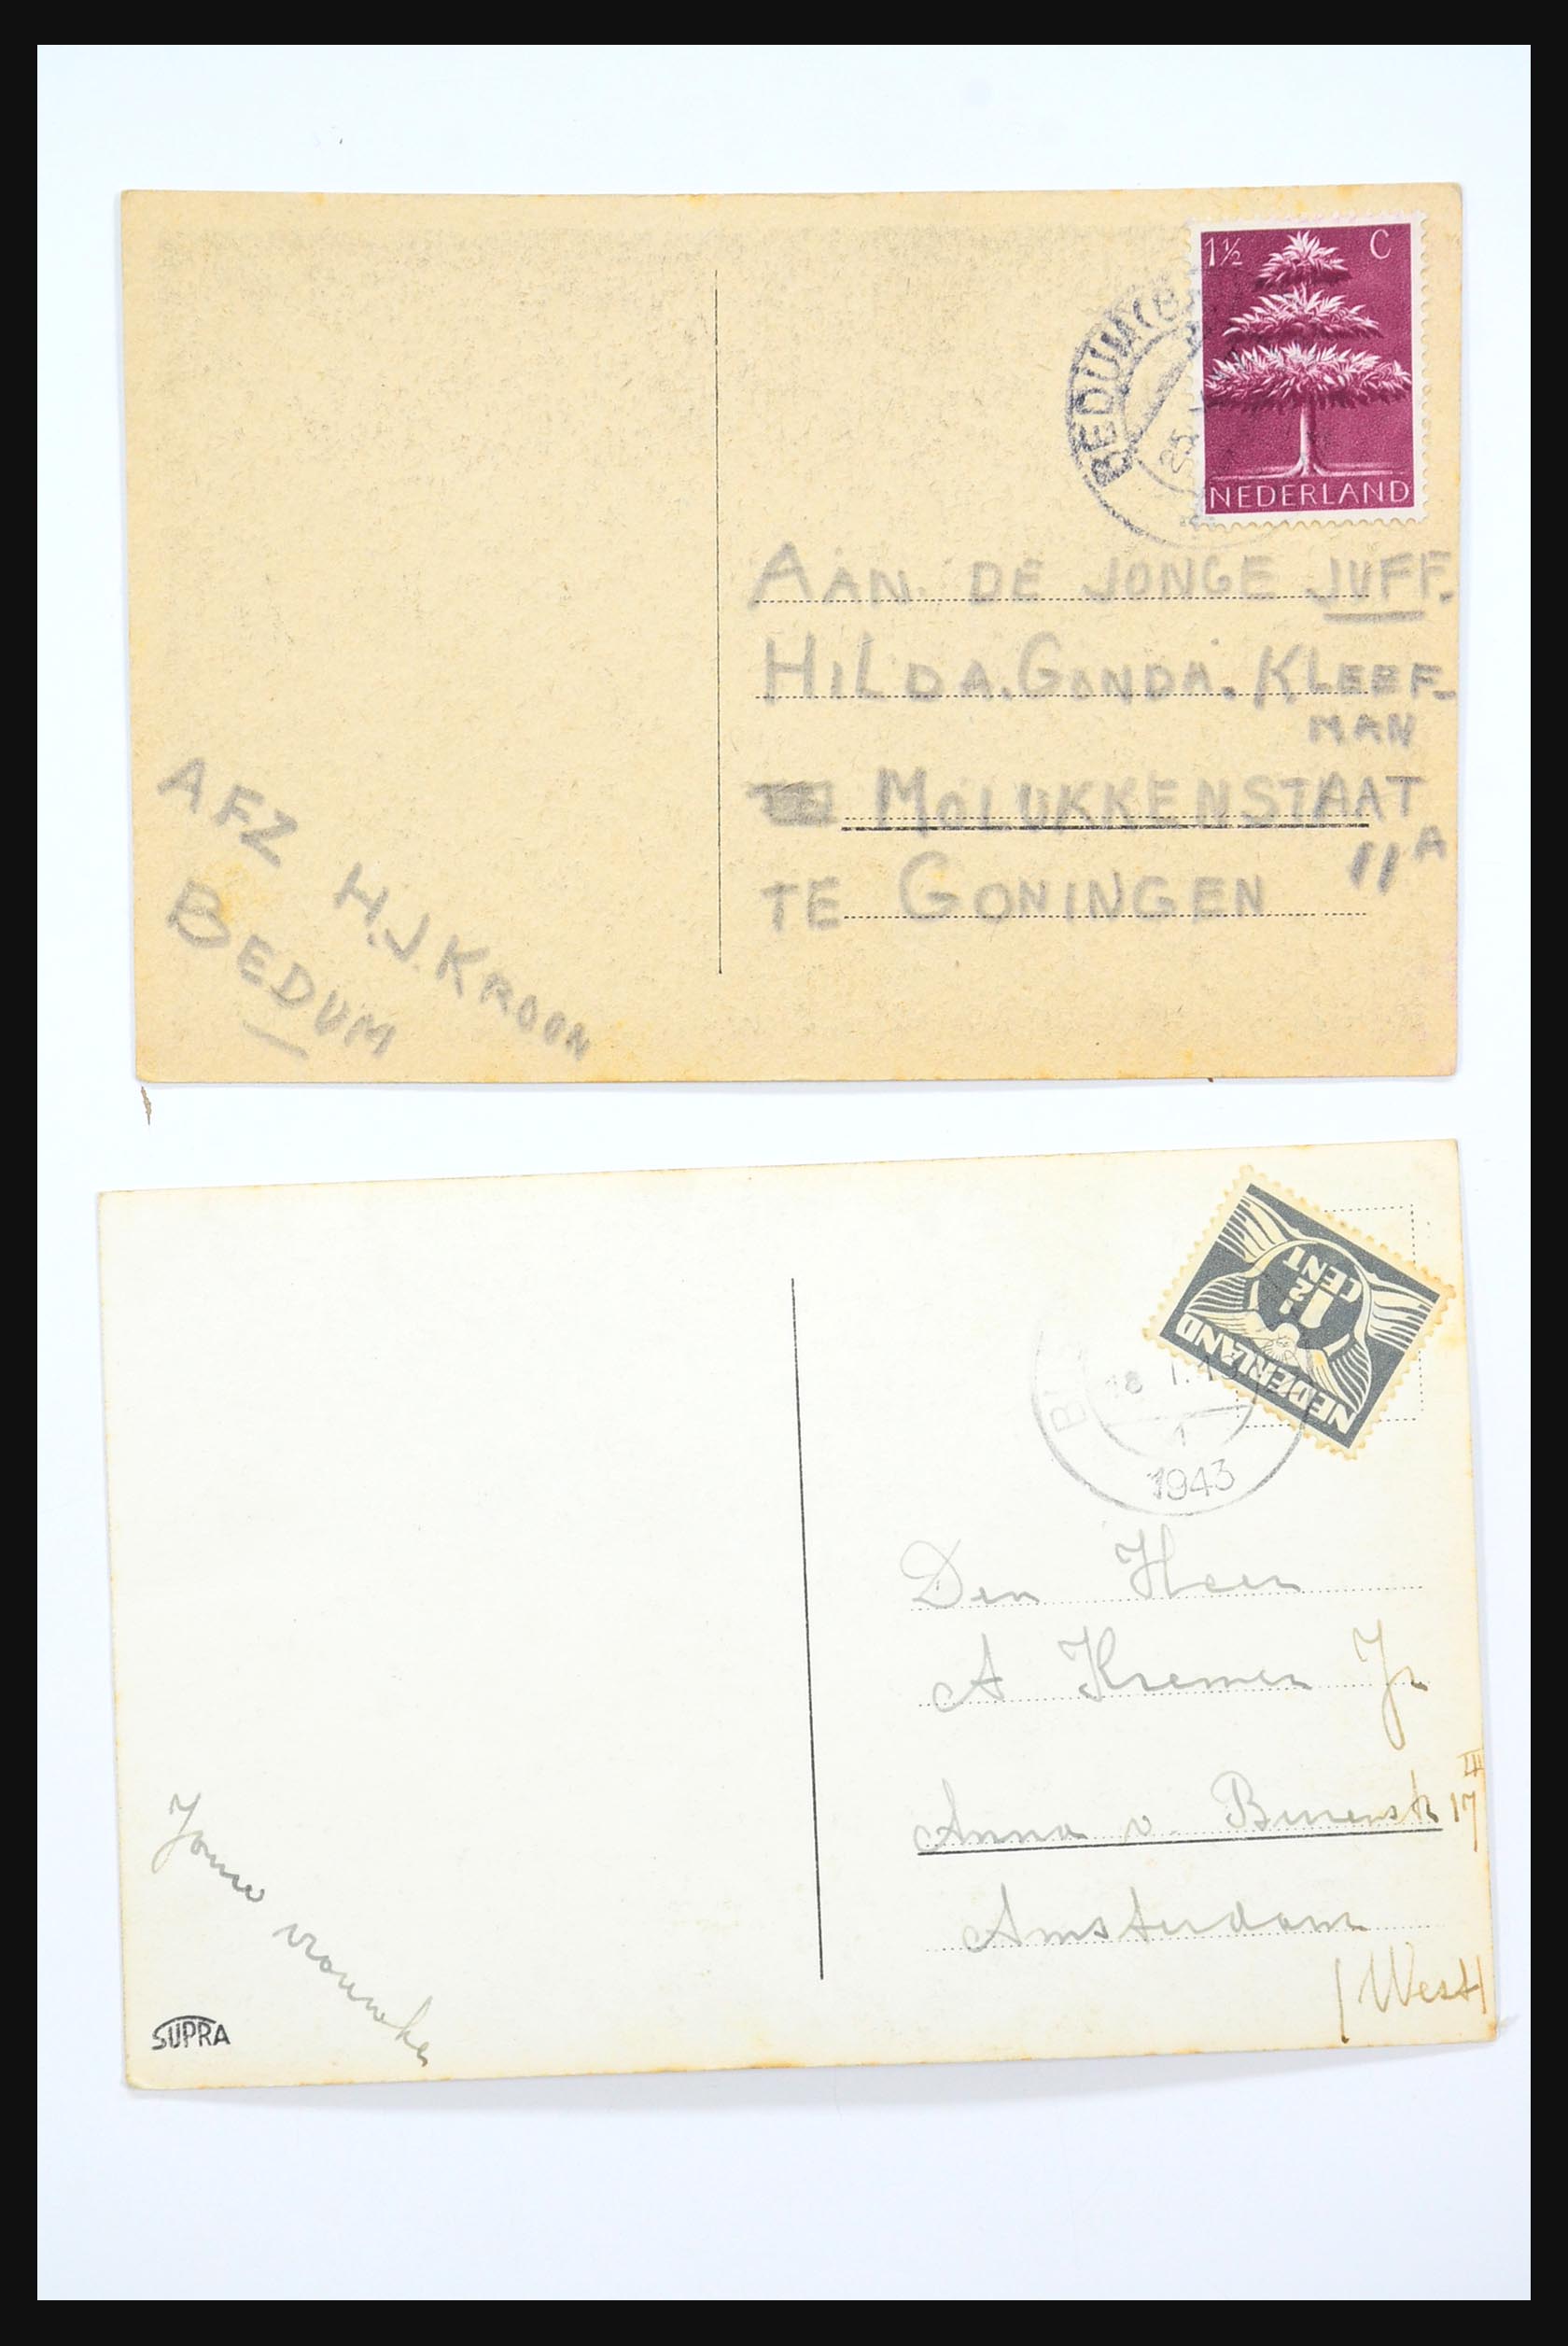 1½ C
NEDERLAND
BEDUM (G
25
AAN DE JONGE JUFF.
HILDA. GONDA. KLEEF-
MAN
TE MOLUKKENSTAAT
11A
TE GONINGEN
AFZ H.J. KROON
BEDUM
NEDERLAND
1½
CENT
18 1.
1
1943
Den Heer
A Kremer Jr
Anna v. Burenstr 17 III
Amsterdam
(West)
Jouw vrouwke
SUPRA